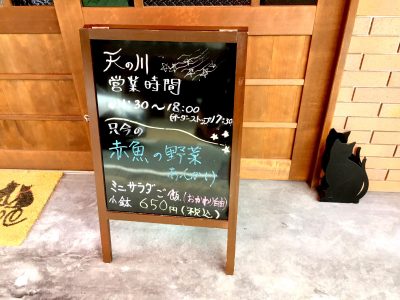 天の川
営業時間
11:30~18:00
(オーダーストップ17:30)
只今の
赤魚の野菜
あんかけ
ミニサラダご飯(おかわり自由)
小鉢 650円(税込)